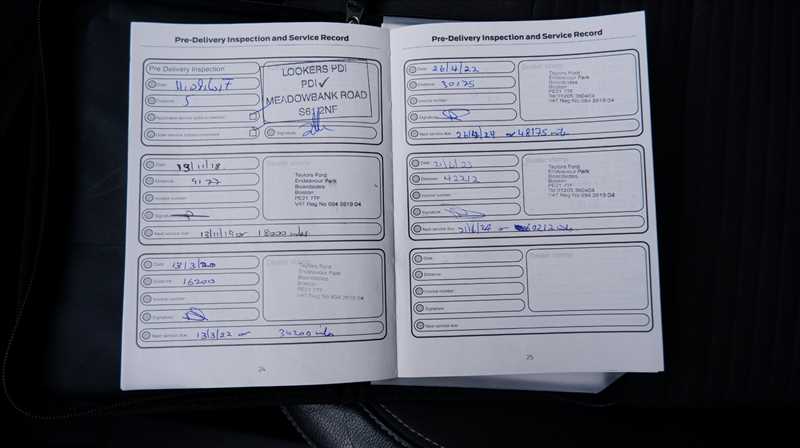 Pre-Delivery Inspection and Service Record
Pre Delivery Inspection
Date
Distance 5
Signature
LOOKERS PDI
PDI ✓
MEADOWBANK ROAD
S61 2NF
Date 13/11/18
Distance 9177
Invoice number
Signature
Next service due 13/11/19 or 18000 miles
Taylors Ford
Endeavour Park
Boardsides
Boston
PE21 7TF
VAT Reg No 694 3619 04
Date 13/3/20
Distance 16200
Invoice number
Signature
Next service due 13/3/22 or 34200 miles
Dealer stamp
Taylors Ford
Endeavour Park
Boardsides
Boston
PE21 7TF
VAT Reg No 694 3619 04
24
Pre-Delivery Inspection and Service Record
Date 26/4/22
Distance 30175
Invoice number
Signature
Next service due 26/4/24 or 48175 mls
Dealer stamp
Taylors Ford
Endeavour Park
Boardsides
Boston
PE21 7TF
VAT Reg No 694 3619 04
Date 21/6/23
Distance 42212
Invoice number
Signature
Next service due 21/6/24 or 60212 mls
Dealer stamp
Taylors Ford
Endeavour Park
Boardsides
Boston
PE21 7TF
VAT Reg No 694 3619 04
Date
Distance
Invoice number
Signature
Next service due
Dealer stamp
25